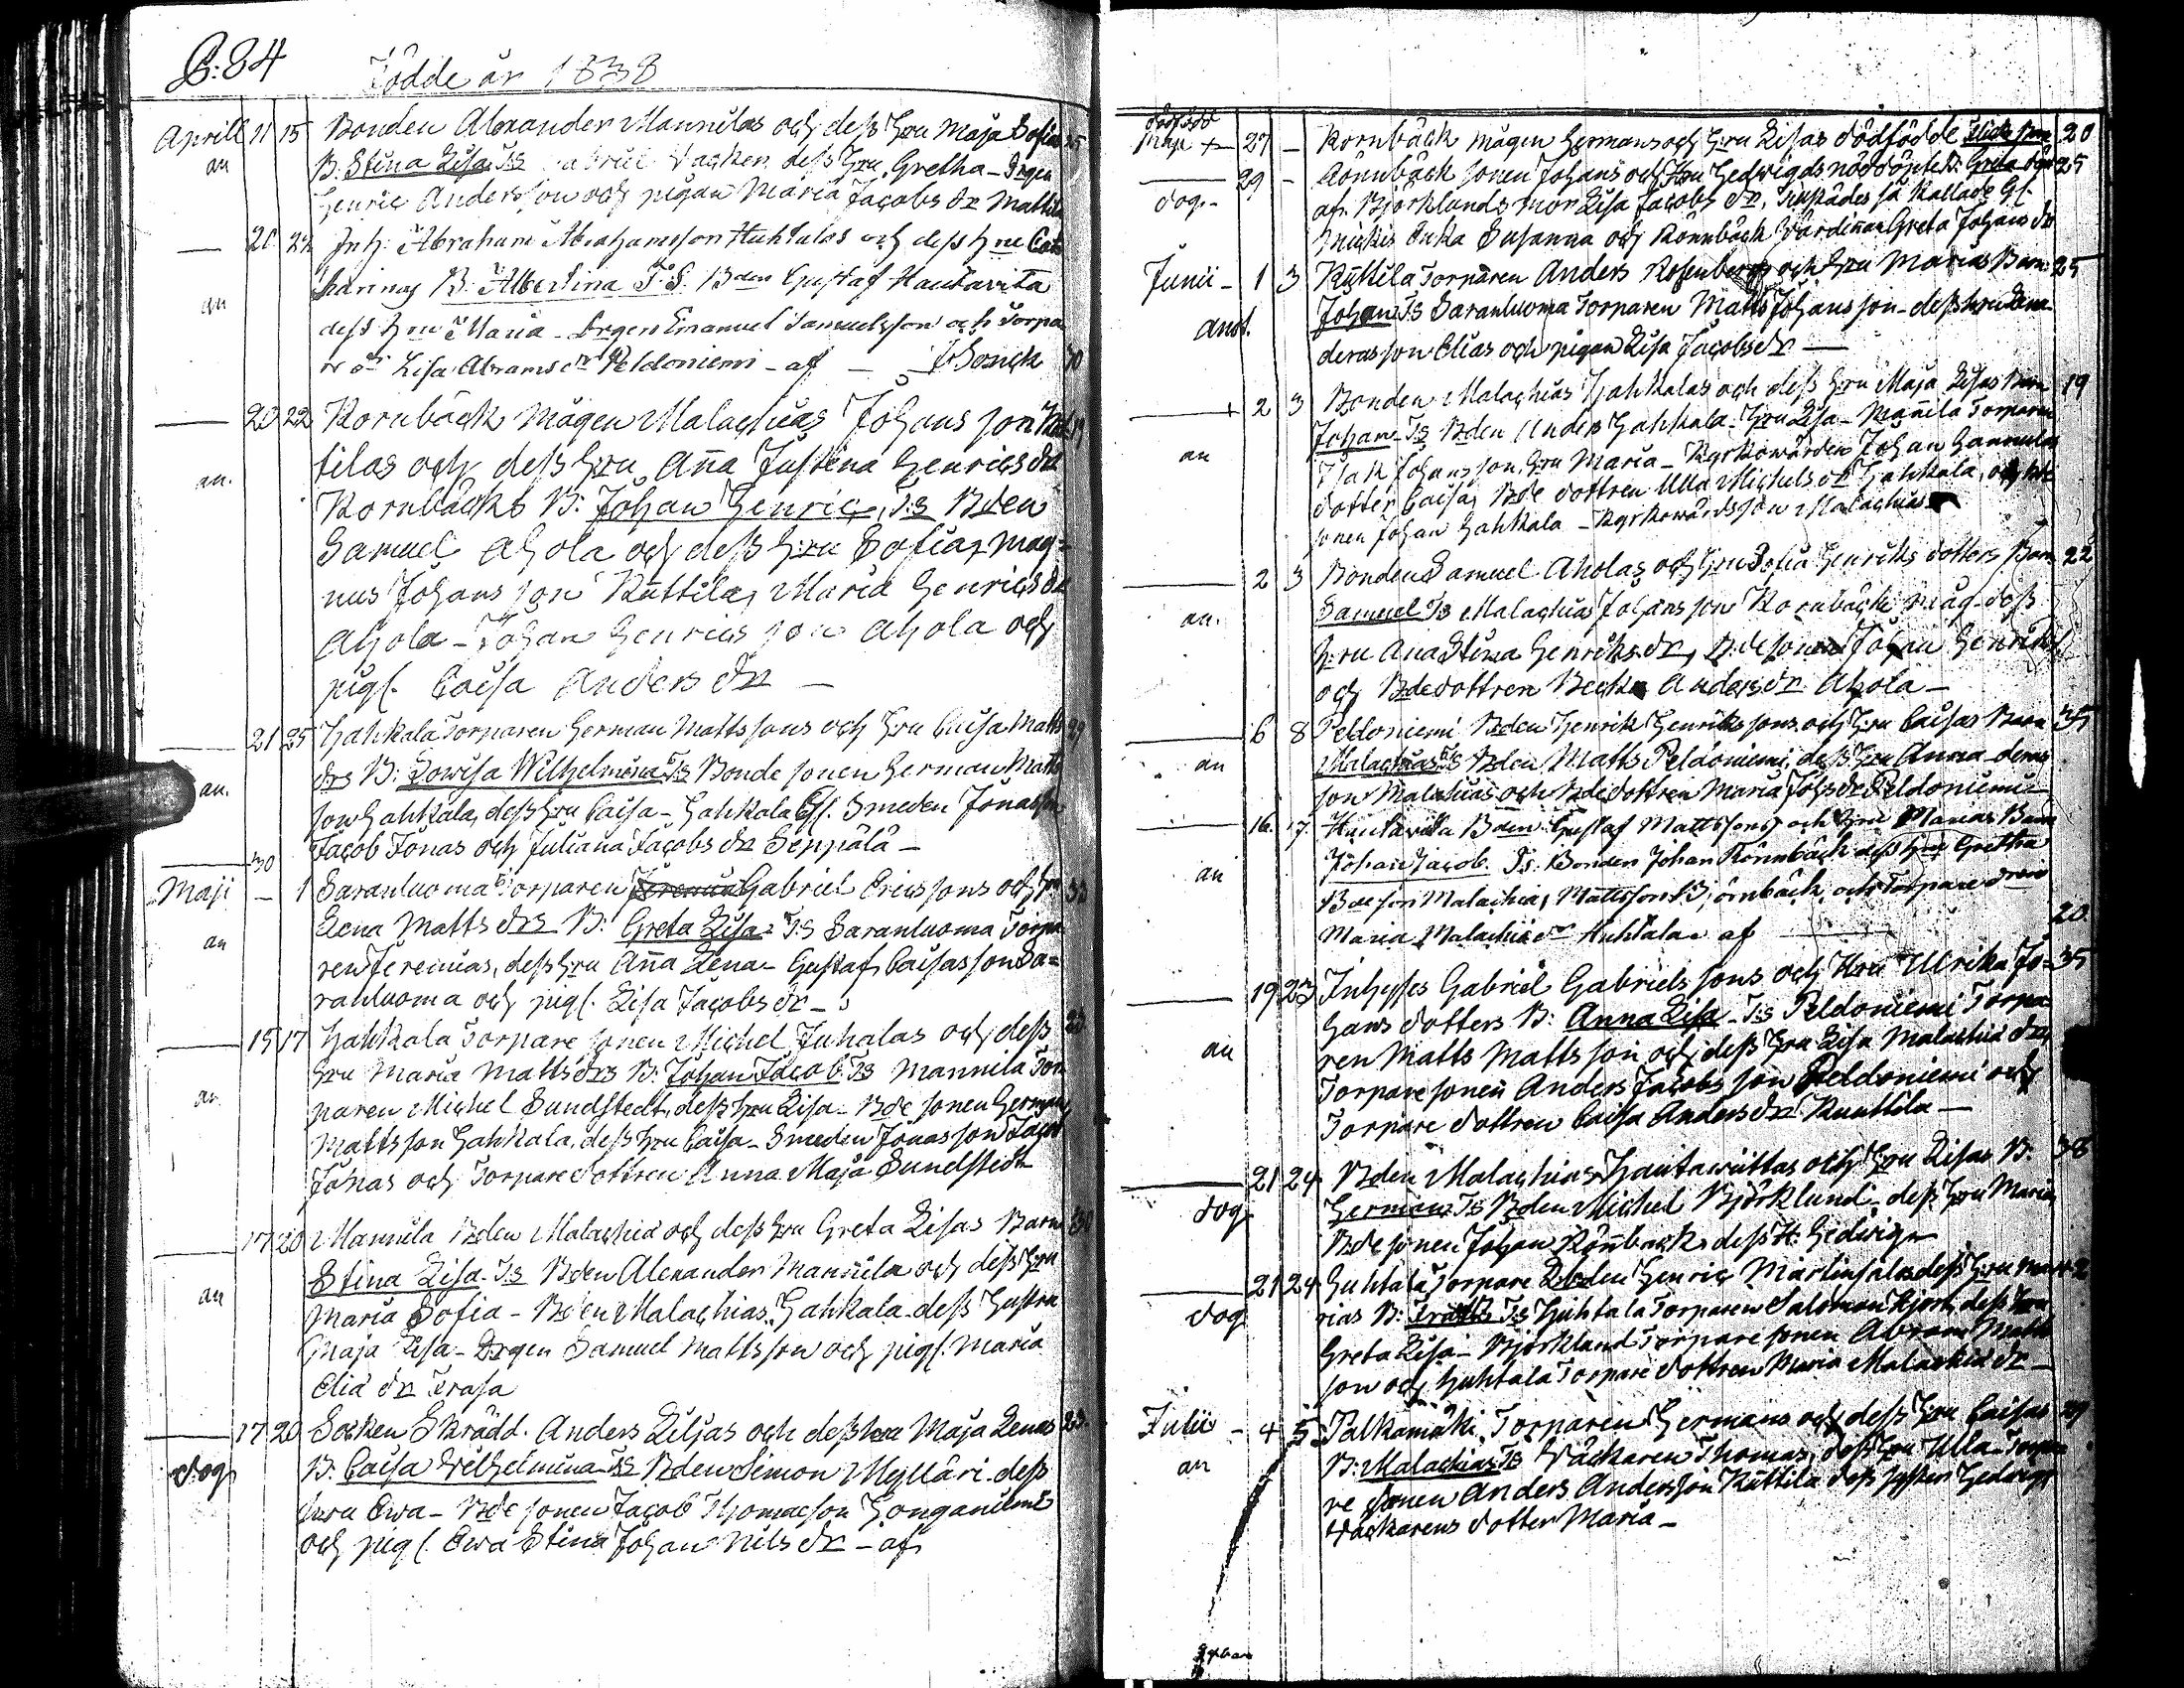 B:84
Födde år 1838
Aprill 11 15 Bonden Alexander Mannilas och dess Hru Maja Sofias 25
an B. Stina Lisa T:s Gretha - Drgen
Henric Andersson och pigan Maria Jacobs dr Mattila
— 20 22 Inh: Abraham Abrahamsson Huhtalas och dess Hru Cat
an harinas B: Albertina T.S. Bden Gustaf Hautavita
dess Hru Maria - Drgen Emanuel Samuelsson och Torpa
re dr Lisa Abrams dr Peldoniemi - af
— 20 22 Kornbäck mågen Malachias Johans son
an. tilas och dess Hru Anna Justina Henrics dr
Kornbäcks B: Johan Henric, T:s Bden
Samuel Ahola och dess Hru Sofia, Mag-
nus Johans son Kuttila, Maria Henrics dr
Ahola - Johan Henrics son Ahola och
pigl. Caisa Anders dr —
— 21 25 Hahkala Torparen Herman Matts sons och Hru Caisa Matts 29
an. drs B: Lowisa Wilhelmina T:s Bonde sonen Herman Matts
son Hahkala, dess Hru Caisa - Hahkala Smeden Jonas
Jacob Jonas och Juliana Jacobs dr Seppälä —
30
Maji — 1 Saranluoma Torparen Gabriel Erics sons och Hru
an Lena Matts drs B: Greta Lisa - T:s Saranluoma Torpa
ren Jeremias, dess Hru Anna Lena - Gustaf Caisas son Sa=
ranluoma och pigl. Lisa Jacobs dr —
— 15 17 Hahkala Torpare sonen Michel Juhalas och dess 23
an Hru Maria Matts drs B: Johan Jacob. T:s Mannila Tor
paren Michel Sundstedt, dess Hru Lisa - Bde sonen Herman
Mattsson Hahkala, dess Hru Caisa - Smeden Jonas son Jacob
Jonas och Torpare dottren Anna Maja Sundstedt
— 17 20 Mannila Bden Malachia och dess Hru Greta Lisas Barn
an Stina Lisa. T:s Bden Alexander Mannila och dess Hru
Maria Sofia - Bden Malachias Hahkala dess Hustru
Maja Lisa - Drgen Samuel Mattsson och pigl. Maria
Elia dr Frasa
— 17 20 Socken Skrädd. Anders Liljas och dess Hru Maja Lenas 23.
dog B: Caisa Wilhelmina T:s Bden Simon Myllari dess
Hru Ewa - Bde sonen Jacob Thomasson Honganiemi
och pigl. Ewa Stina Johan Nils dr - af
dödfödd
Maji + 27 — Kornbäck mågen Hermans och Hru Lisas dödfödde 20
— 29 — Rönnbäck sonen Johans och Hru Hedwigs nöddöpte B: Greta 25
dog- af Björklunds mor Lisa Jacobs dr,
enka Susanna och Rönnbäck Wärdinan Greta Johans dr
Junii - 1 3 Kuttila Torparen Anders Rosenbergs och Hru Marias Barn 25
anst. Johan T:s Saranluoma Torparen Matts Johansson - dess Hru Lena
deras son Elias och pigan Lisa Jacobs dr —
— + 2 3 Bonden Malachias Hahkalas och dess Hru Maja Lisas Barn 19
an Johan - T:s Bden Anders Hahkala - Hru Lisa - Mannila Torparen
Isak Johansson, Hru Maria - Kyrkowärden Johan Hannula
dotter Caisa, Bde dottren Ulla Michels dr Hahkala, och
sonen Johan Hahkala - Kyrkowärds son Malachias
— 2 3 Bonden Samuel Aholas och Hru Sofia Henriks dotters Barn 22
an. Samuel T:s Malachias Johans son Kornbäck måg - dess
Hru Ana Stina Henriks dr, Bde sonen Johan Henriks
och Bde dottren Anders dr Ahola —
— 6 8 Peldoniemi Bden Henrik Henriks sons och Hru Caisas Barn 35
an Malachias T:s Bden Matts Peldoniemi, dess Hru Anna - deras
son Malachias och Bde dottren Maria Johs dr Peldoniemi —
— 16. 17. Hautavita Bden Gustaf Mattssons och Hru Marias Barn
an Johan Jacob. T:s. Bonden Johan Rönnbäck dess Hru Gretha
Bde son Malachias Mattsson Björnbäck och Torpare dren
Maria Malachia dr Huhtala - af 20
— 19 23 Inhyses Gabriel Gabriels sons och Hru Ulrika Jo- 35
an hans dotters B: Anna Lisa - T:s Peldoniemi Torpa
ren Matts Matts son och dess Hru Lisa Malachia dr,
Torpare sonen Anders Jacobs son Peldoniemi och
Torpare dottren Caisa Anders dr Kuuttila —
— 21 24 Bden Malachias Hautawiittas och Hru Lisas B: 38
dog Herman T:s Bden Michel Björklund - dess Hru Maria,
Bde sonen Johan Rönnbäck dess H: Hedwig
— 21 24 Huhtala Torpare Henric Martinsalos dess Hru Ma
dog rias B: T:s Huhtala Torparen Salomon Hjort, dess Hru
Greta Lisa - Björklund Torpare sonen Abram Matts
son och Huhtala Torpare dottren Maria Malachia dr —
Julii - 4 5 Palkamäki Torparen Hermans och dess Hru Caisas 29
an B: Malachias T:s Väckaren Thomas, dess Hru Ulla - Torpa
re sonen Anders Andersson Kuttila dess syster Hedwig
Väckarens dotter Maria —